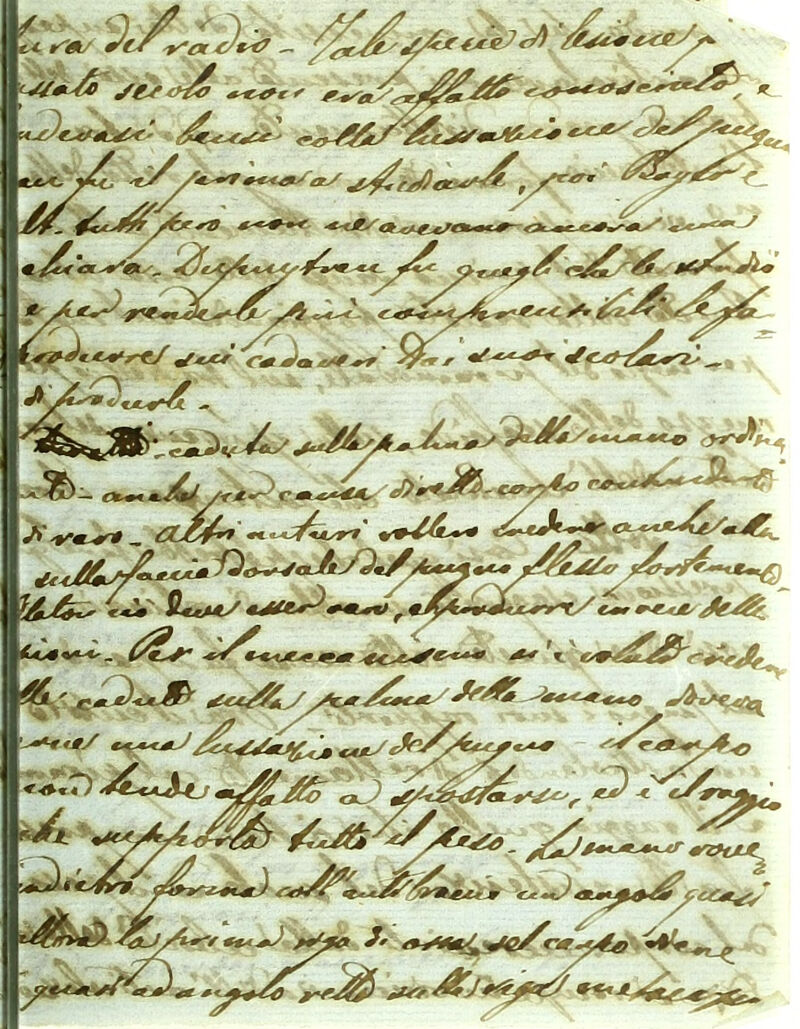 ura del radio - Tale specie di lesione
ssato secolo non era affatto conosciuta, e
ndevasi bensì colla lussazione del pugno
fu il primo a studiarle, poi
lt. tutti però non ne avevano ancora una
chiara. Dupuytren fu quegli che le studiò
e per renderle più comprensibili le fa=
produrre sui cadaveri dai suoi scolari -
di produrle -
- caduta sulla palma della mano ordina
nte - anche per causa diretta corpo contundente
di raro - Altri autori vollero credere anche alla
sulla faccia dorsale del pugno flesso fortemente -
ciò deve esser raro, e produrre invece delle
zioni. Per il meccanismo si è voluto credere
lle cadute sulla palma della mano doveva
una lussazione del pugno - il carpo
non tende affatto a spostarsi, ed è il raggio
che supporta tutto il peso. La mano rove=
indietro forma coll' antibraccio un angolo quasi
allora la prima riga di ossa del carpo viene
quasi ad angolo retto sulla riga